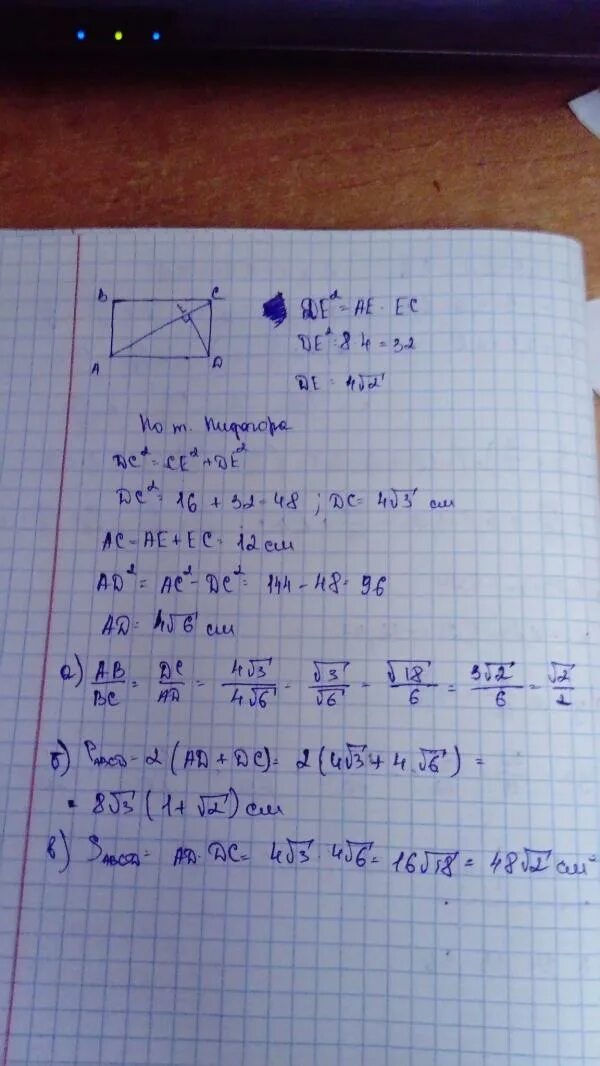 B C
E
A D
DE² = AE · EC
DE² = 8·4 = 32
DE = 4√2
По т. Пифагора
DC² = CE² + DE²
DC² = 16 + 32 = 48 ; DC = 4√3 см
AC = AE + EC = 12 см
AD² = AC² - DC² = 144 - 48 = 96
AD = 4√6 см
а) AB/BC = DC/AD = 4√3/4√6 = √3/√6 = √18/6 = 3√2/6 = √2/2
б) P_ABCD = 2 (AD + DC) = 2 (4√3 + 4√6) =
= 8√3 (1 + √2) см
в) S_ABCD = AD · DC = 4√3 · 4√6 = 16√18 = 48√2 см²